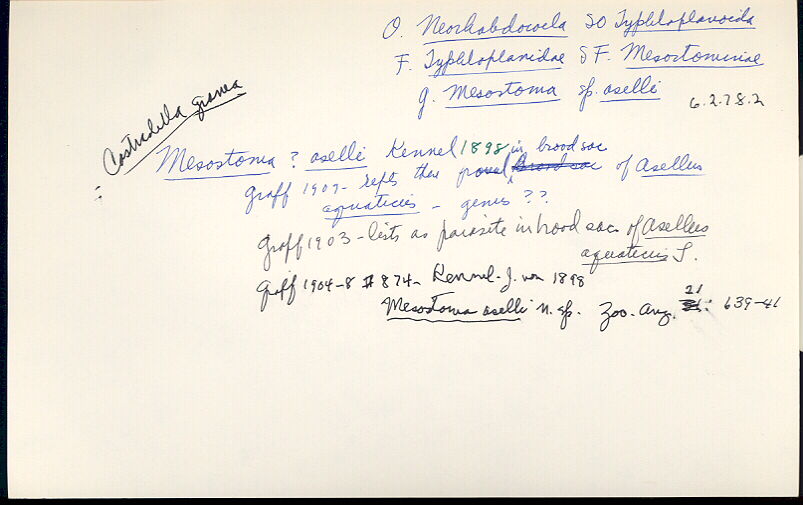 O. Neorhabdocoela SO Typhloplanoida
F. Typhloplanidae SF. Mesostominae
g. Mesostoma sp. aselli 6.2.78.2
= Castradella granea
Mesostoma ? aselli Kennel 1898 in brood sac
Graff 1909- repts thee brood sac of Asellus
aquaticus - genus ??
Graff 1903- lists as parasite in brood sac of Asellus
aquaticus L.
Graff 1904-8 # 874- Kennel- J. von 1898
Mesostoma aselli n. sp. Zoo. Anz. 21: 639-41